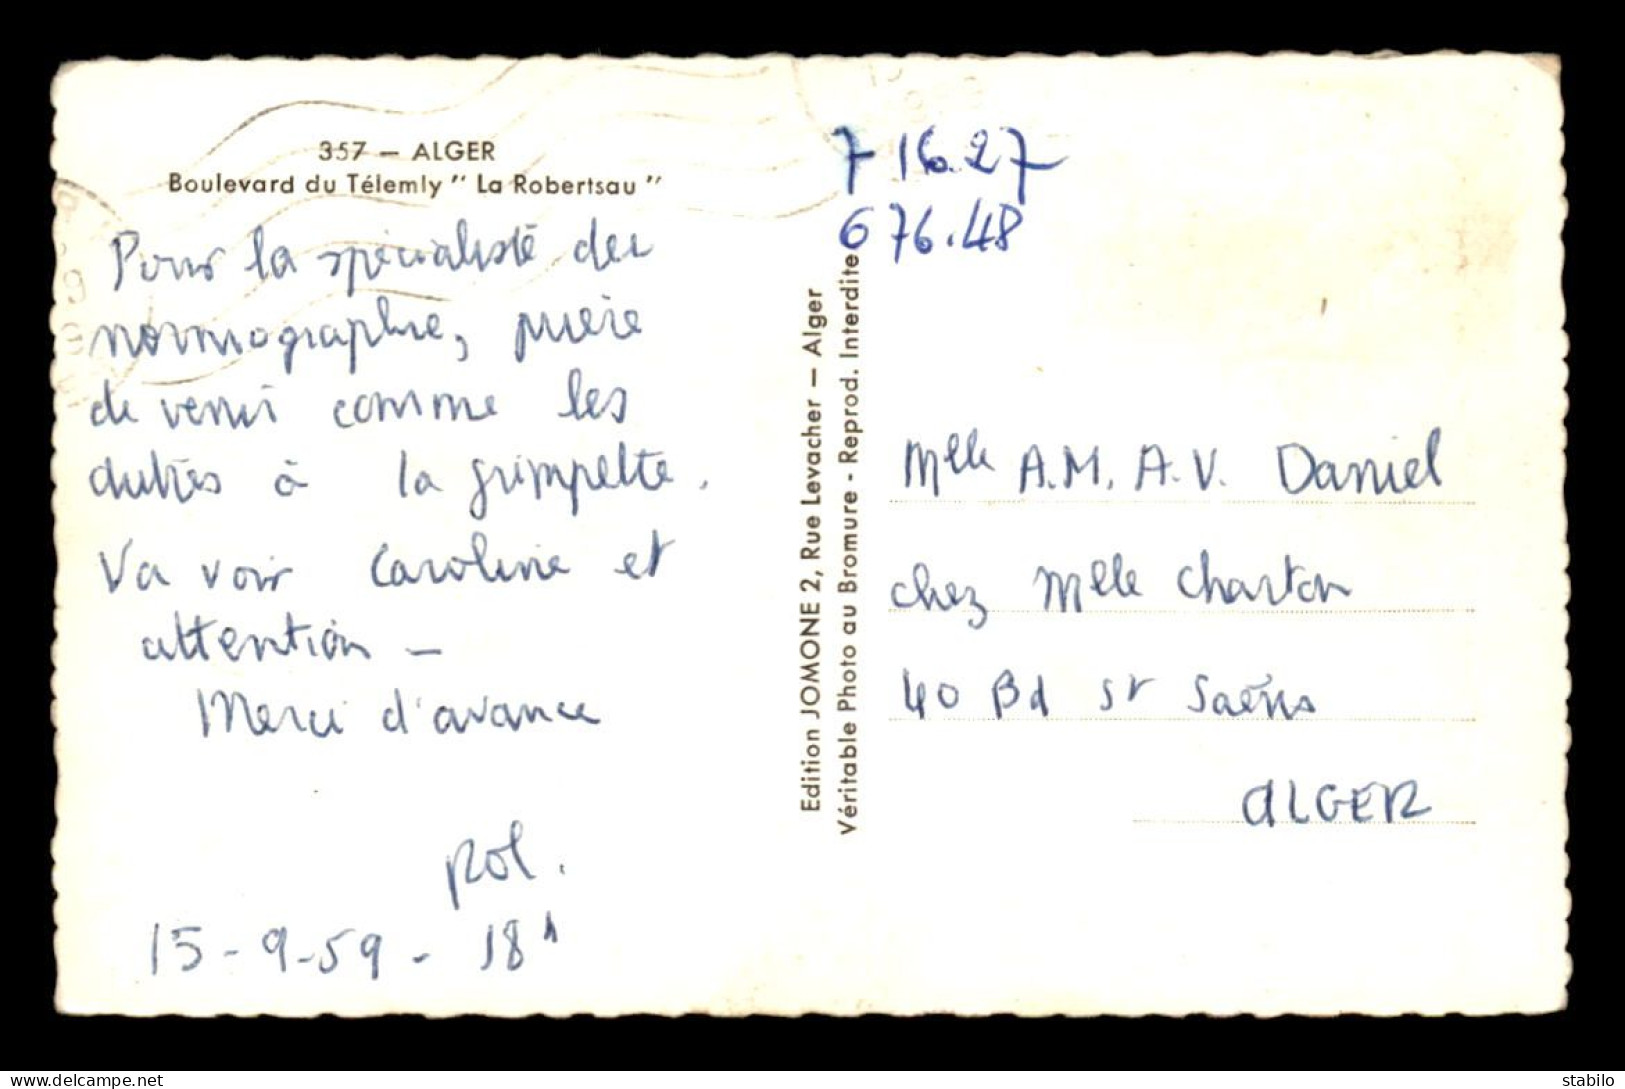 357 — ALGER
Boulevard du Télemly " La Robertsau "
Pour la spécialiste des
normographe, prière
de venir comme les
autres à la grimpette.
Va voir Caroline et
attention —
Merci d'avance
Pol.
15-9-59 - 18h
Edition JOMONE 2, Rue Levacher — Alger
Véritable Photo au Bromure - Reprod. Interdite
716.27
676.48
Mlle A.M. A.V. Daniel
chez Mlle Charton
40 Bd St Saëns
ALGER
delcampe.net
stabilo